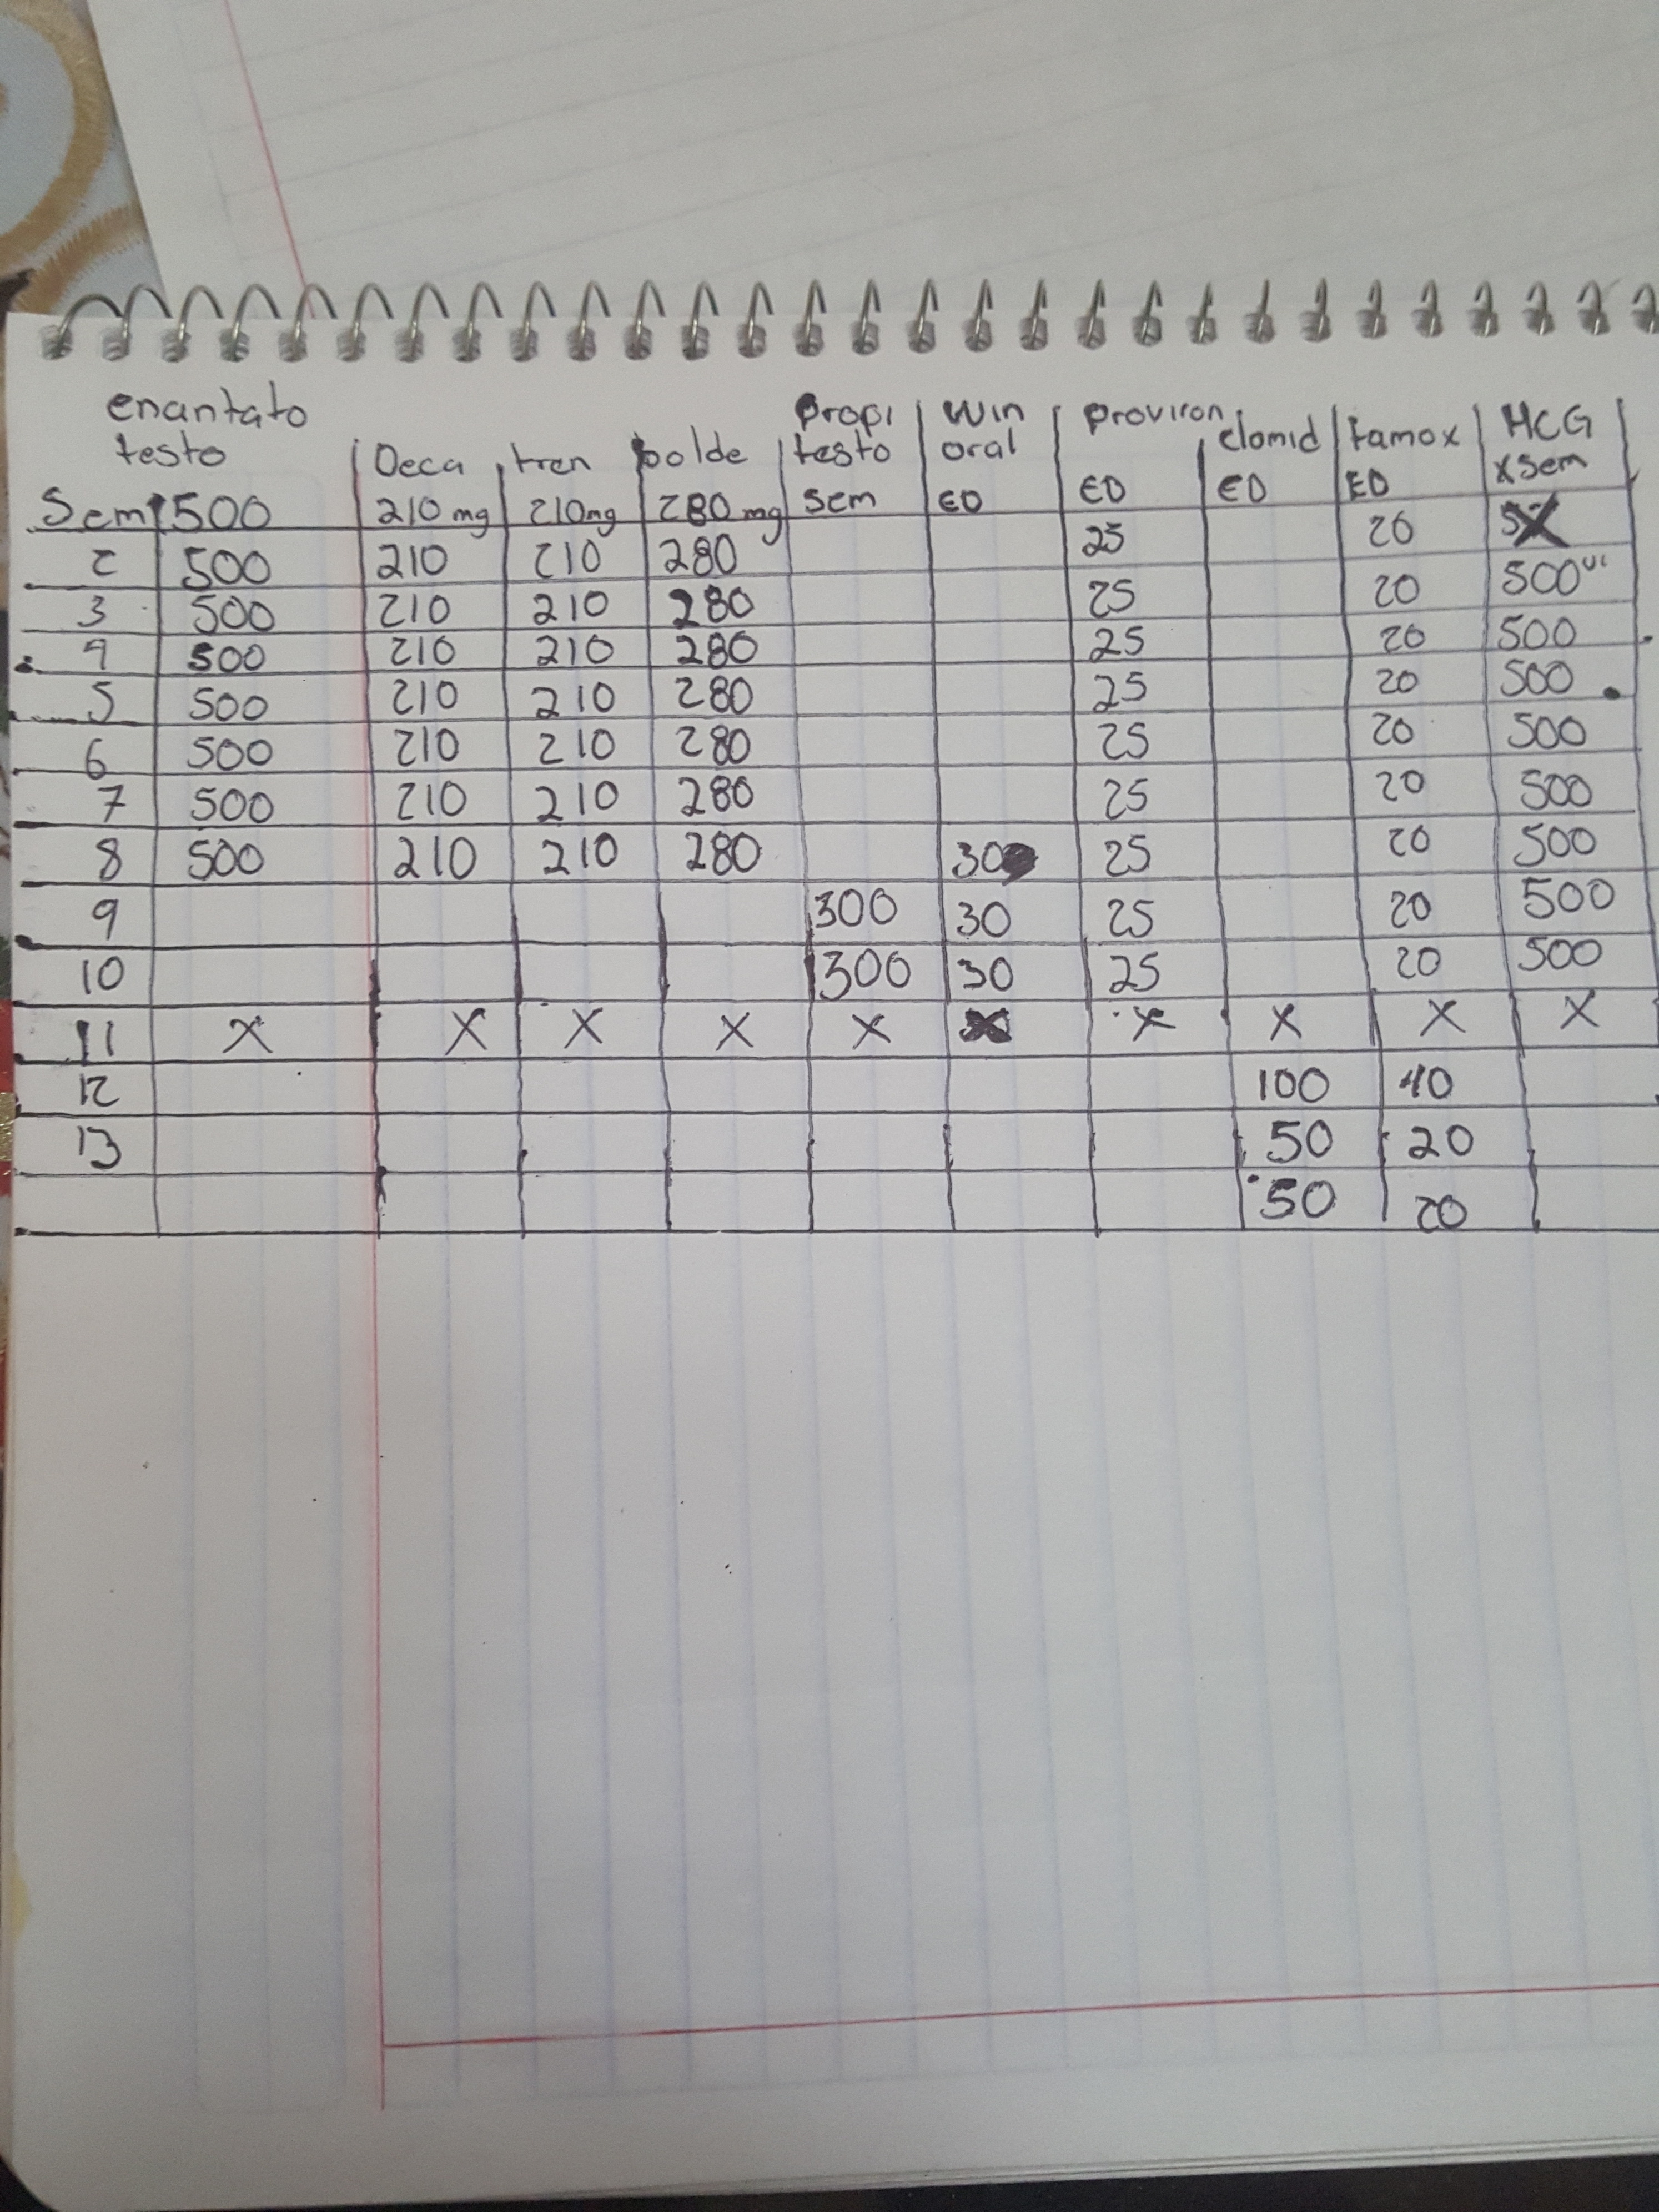 enantato testo Deca tren bolde Propi testo Win oral Proviron clomid tamox HCG
Sem 1 500 210 mg 210mg 280 mg Sem ED ED ED ED x sem
2 500 210 210 280 25 20
3 500 210 210 280 25 20 500 UI
4 500 210 210 280 25 20 500
5 500 210 210 280 25 20 500
6 500 210 210 280 25 20 500
7 500 210 210 280 25 20 500
8 500 210 210 280 30 25 20 500
9 300 30 25 20 500
10 300 30 25 20 500
11 X X X X X X X X X X
12 100 40
13 50 20
50 20